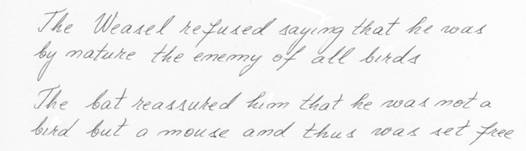 The Weasel refused saying that he was
by nature the enemy of all birds
The bat reassured him that he was not a
bird but a mouse and thus was set free